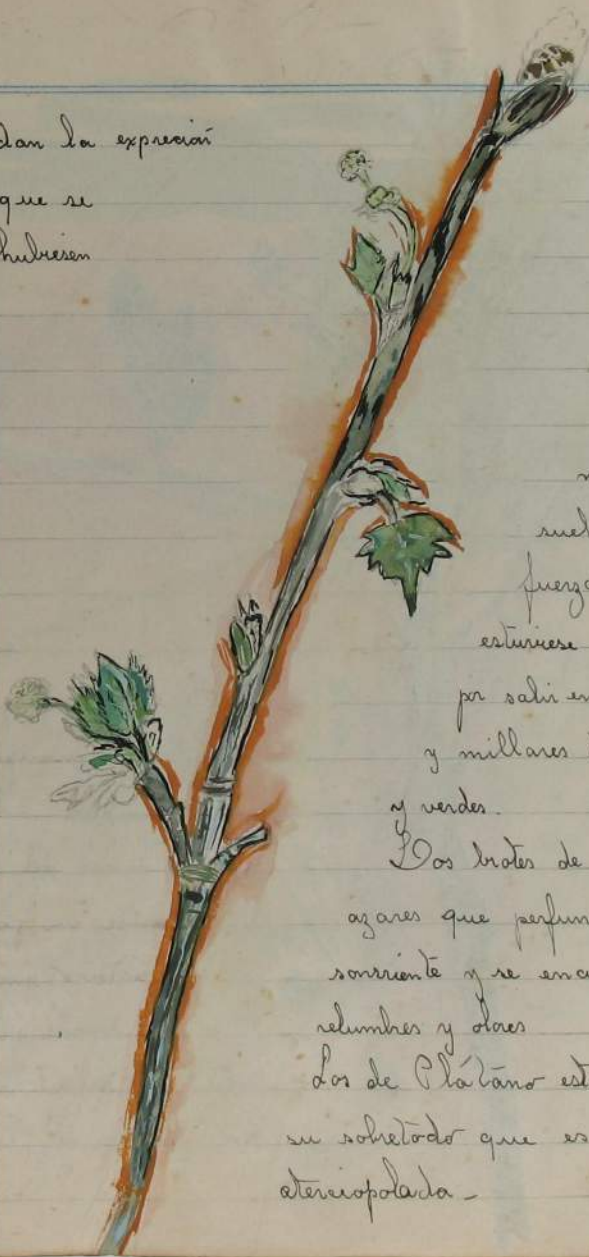 dan la expreción
que se
hubiesen
suel
fuerza
estuviese
por salir en
y millares
y verdes.
Los brotes de
azares que perfun
sonriente y se enc
relumbres y olores
Los de Plátano est
su sobretódo que es
aterciopelada -